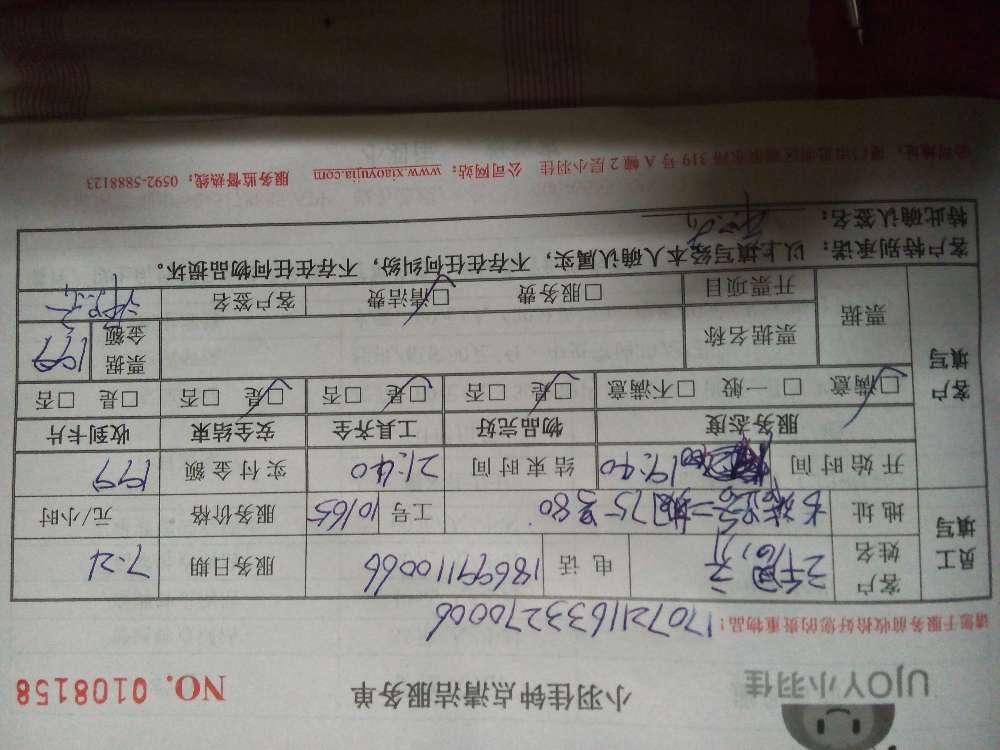 UJOY小羽佳 小羽佳钟点清洁服务单 NO. 0108158
请您于服务前收拾好您的贵重物品: 1707211633270006
员工填写
客户姓名 电话 18699110066 服务日期 7.21
地址 工号 10165 服务价格 元/小时
开始时间 19:40 结束时间 21:40 实付金额 199
客户填写
服务态度 物品完好 工具齐全 安全结束 收到卡片
☑满意 □一般 □不满意 ☑是 □否 ☑是 □否 ☑是 □否 □是 □否
票据 票据名称 票据金额 199
开票项目 □服务费 ☑清洁费 客户签名
客户特别承诺:以上填写经本人确认属实,不存在任何纠纷,不存在任何物品损坏。
特此确认签名:
319号A幢2层小羽佳 公司网站:www.xiaoyujia.com 服务监督热线:0592-5888123